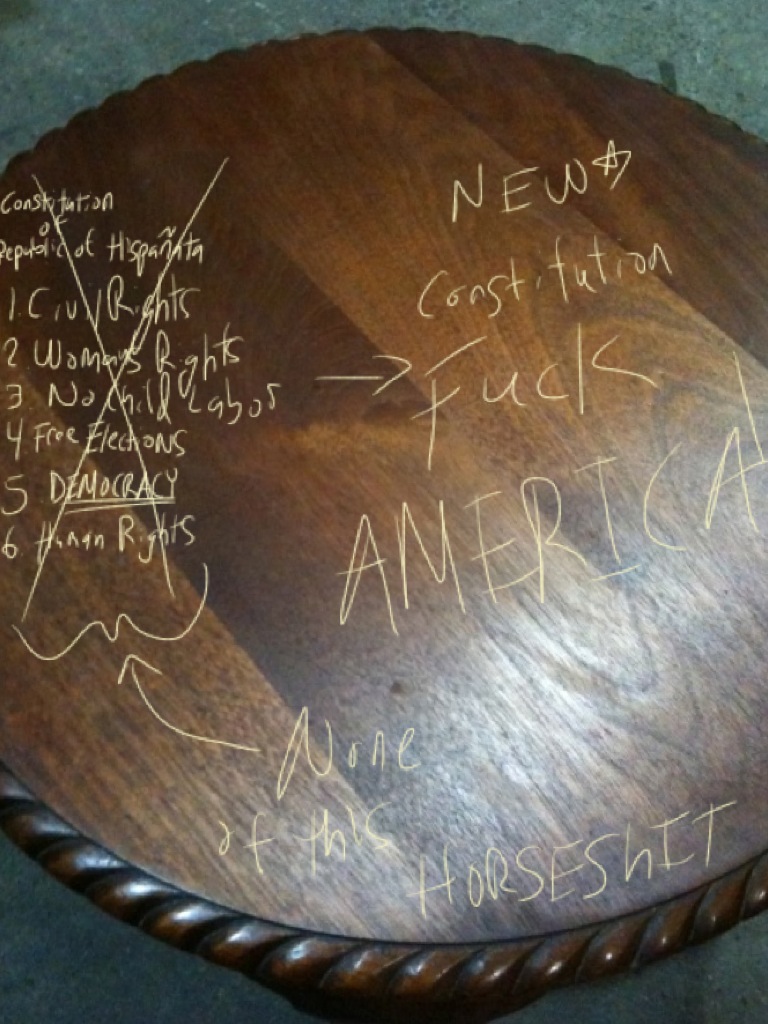 Constitution
of
Republic of Hispañata
1. Civil Rights
2 Womans Rights
3. No Child Labor
4 Free Elections
5 DEMOCRACY
6 Human Rights
NEW
Constitution
Fuck
AMERICA
None
of this
HORSEShIT